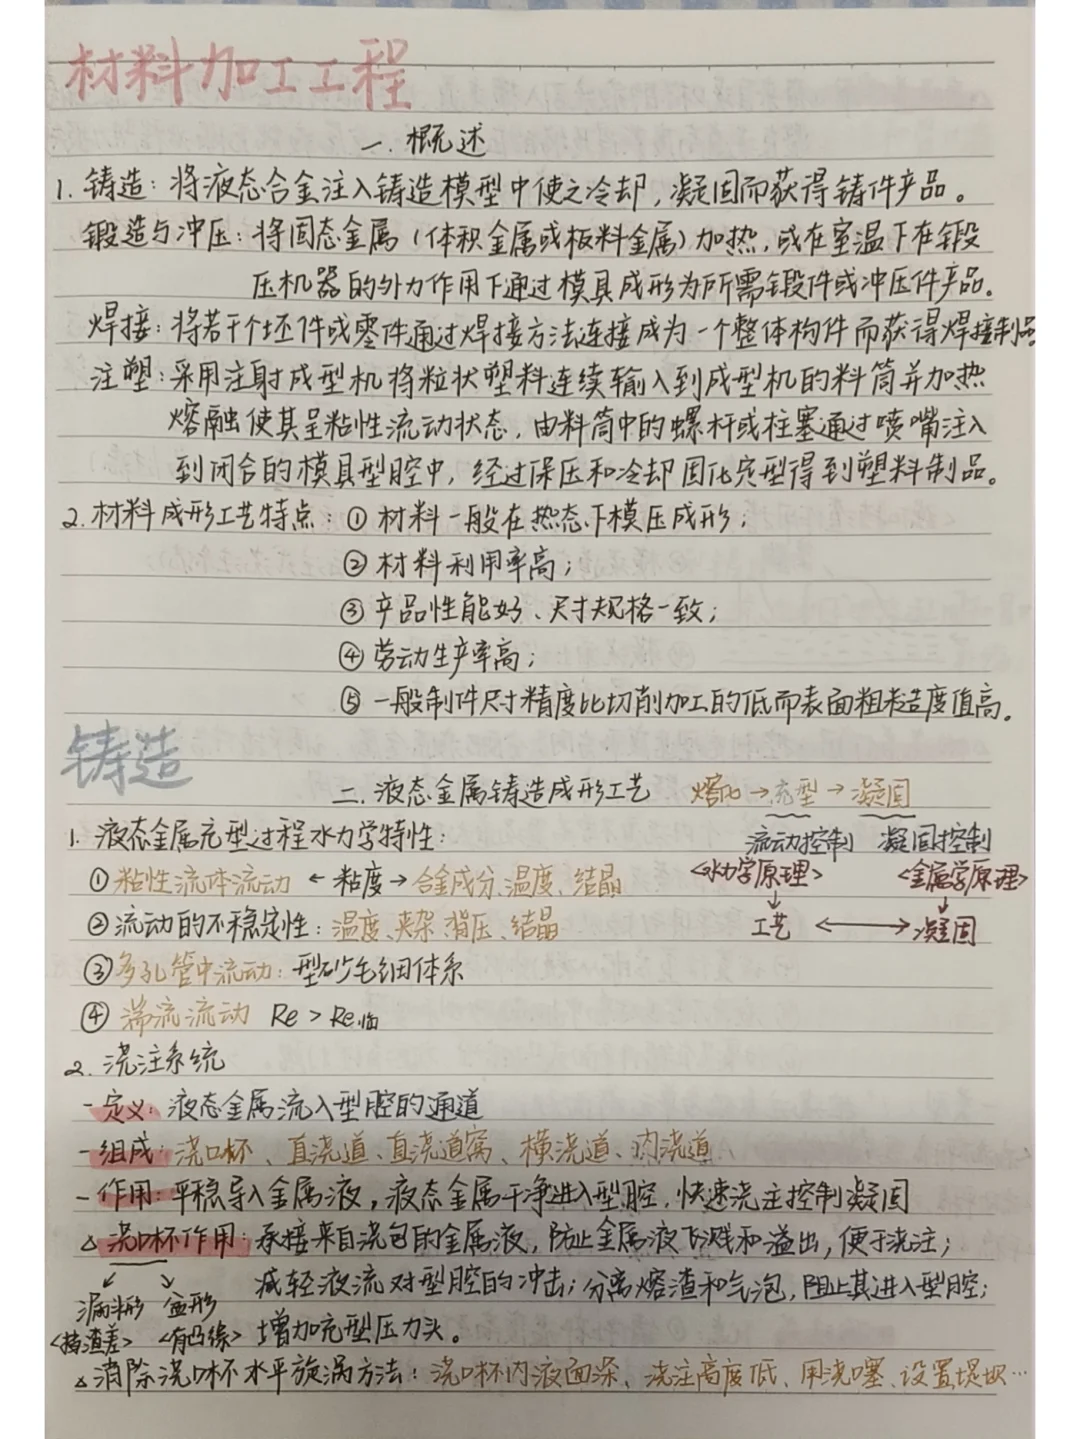 材料加工工程
一. 概述
1. 铸造：将液态合金注入铸造模型中使之冷却，凝固而获得铸件产品。
锻造与冲压：将固态金属（体积金属或板料金属）加热，或在室温下在锻
压机器的外力作用下通过模具成形为所需锻件或冲压件产品。
焊接：将若干个坯件或零件通过焊接方法连接成为一个整体构件而获得焊接制品
注塑：采用注射成型机将粒状塑料连续输入到成型机的料筒并加热
熔融使其呈粘性流动状态，由料筒中的螺杆或柱塞通过喷嘴注入
到闭合的模具型腔中，经过保压和冷却固化定型得到塑料制品。
2. 材料成形工艺特点：① 材料一般在热态下模压成形；
② 材料利用率高；
③ 产品性能好、尺寸规格一致；
④ 劳动生产率高；
⑤ 一般制件尺寸精度比切削加工的低而表面粗糙度值高。
铸造
二. 液态金属铸造成形工艺 熔化→充型→凝固
1. 液态金属充型过程水力学特性： 流动控制 凝固控制
①粘性流体流动 ← 粘度 → 合金成分、温度、结晶 <水力学原理> <金属学原理>
②流动的不稳定性：温度、夹杂、背压、结晶 工艺 ↔ 凝固
③多孔管中流动：型砂毛细体系
④ 湍流流动 Re > Re临
2. 浇注系统
- 定义：液态金属流入型腔的通道
- 组成：浇口杯、直浇道、直浇道窝、横浇道、内浇道
- 作用：平稳导入金属液，液态金属干净进入型腔，快速浇注控制凝固
△ 浇口杯作用：承接来自浇包的金属液，防止金属液飞溅和溢出，便于浇注；
减轻液流对型腔的冲击；分离熔渣和气泡，阻止其进入型腔；
漏斗形 盆形
<挡渣差> <有凸缘> 增加充型压力头。
△ 消除浇口杯水平旋涡方法：浇口杯内液面深、浇注高度低、用浇口塞、设置堤坝…